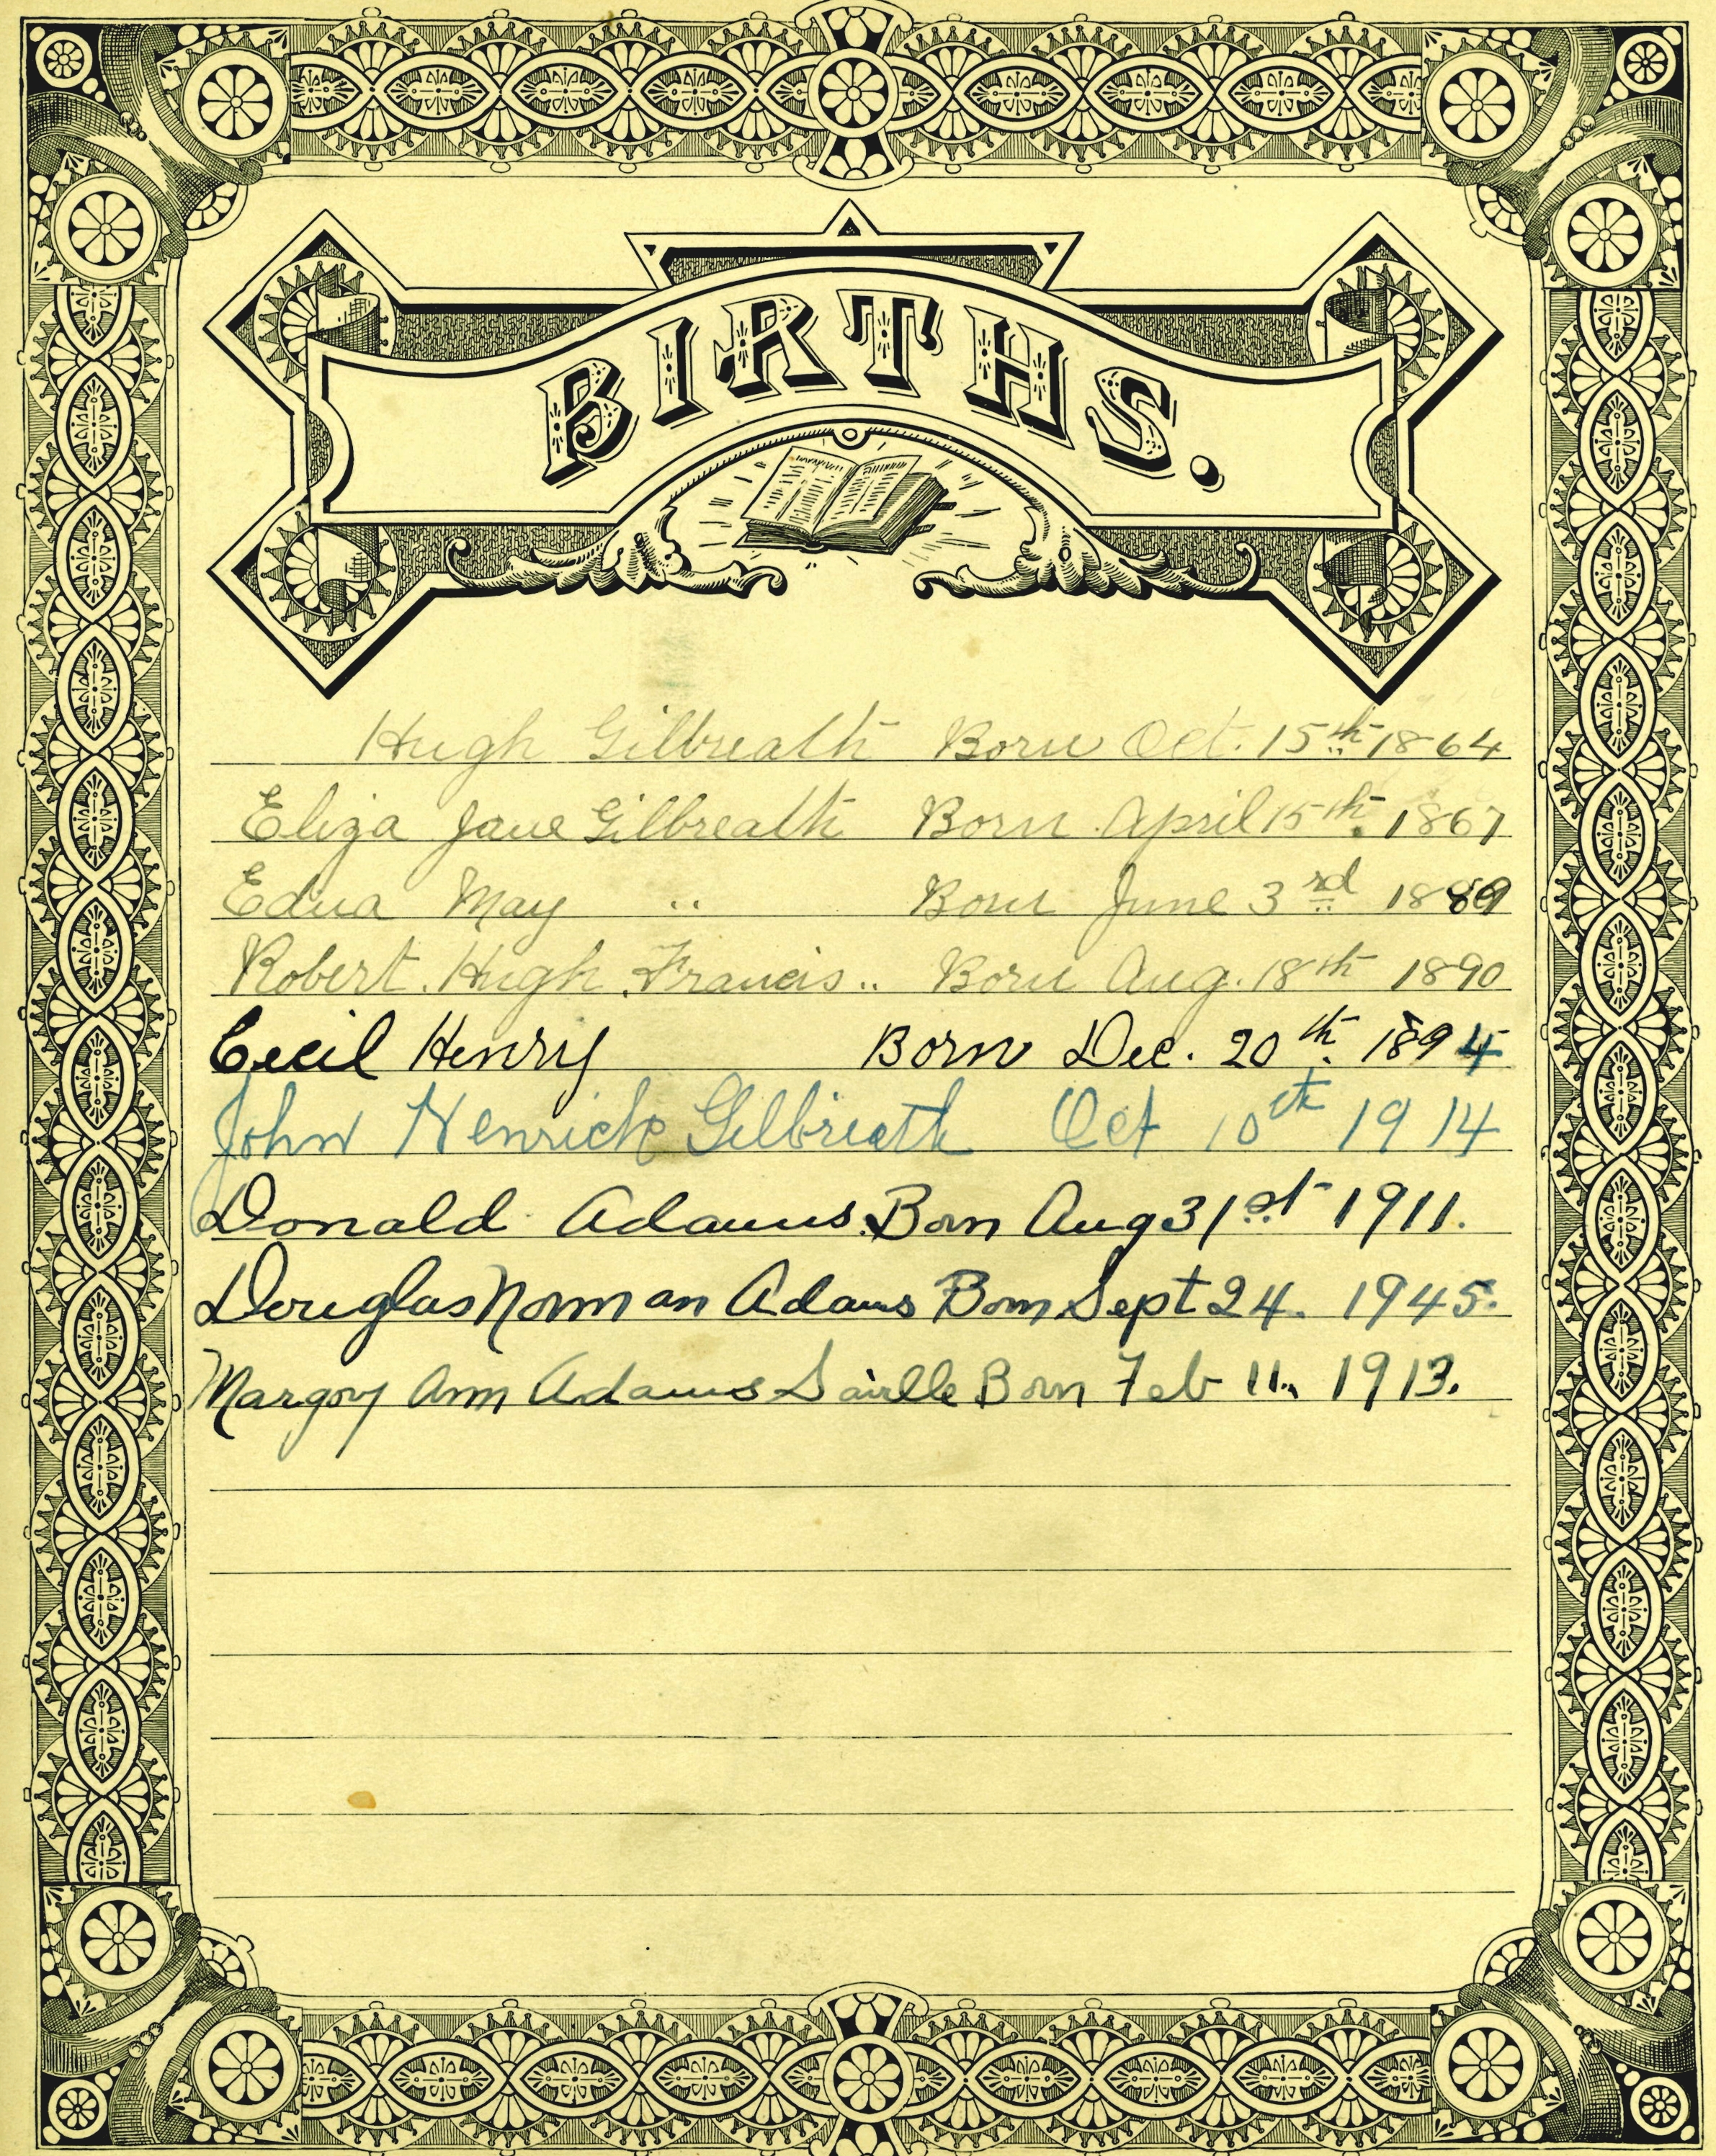 BIRTHS.
Hugh Gilbreath Born Oct. 15th 1864
Eliza Jane Gilbreath Born April 15th 1867
Edna May " Born June 3rd 1889
Robert Hugh Francis " Born Aug. 18th 1890
Cecil Henry Born Dec. 20th 1894
John Henrich Gilbreath Oct 10th 1914
Donald Adams Born Aug 31st 1911.
Douglas Norman Adams Born Sept 24. 1945.
Margory Ann Adams Born Feb 11. 1913.